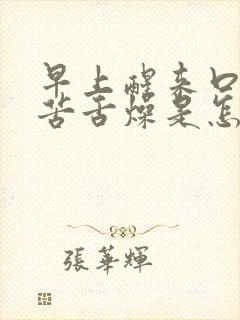 早上醒来口
苦舌燥是怎
張華輝